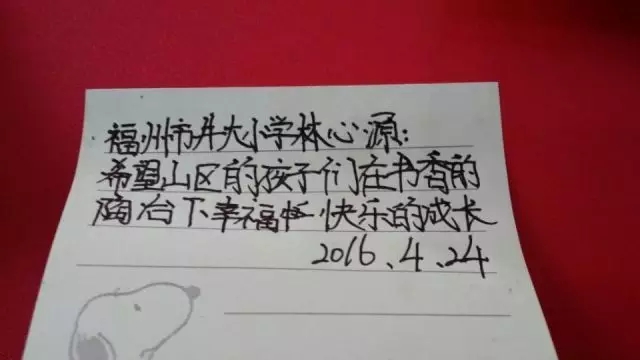 福州市井大小学林心源:
希望山区的孩子们在书香的
陶冶下幸福快乐的成长
2016.4.24